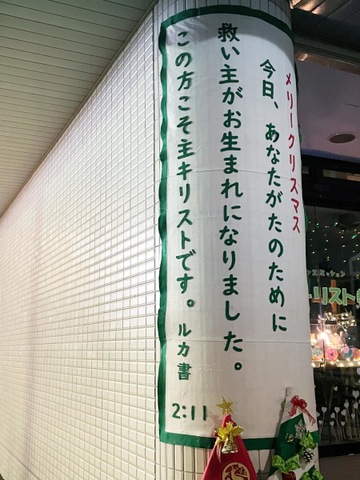 メリークリスマス
今日、あなたがたのために
救い主がお生まれになりました。
この方こそ主キリストです。ルカ書
2:11
リスト